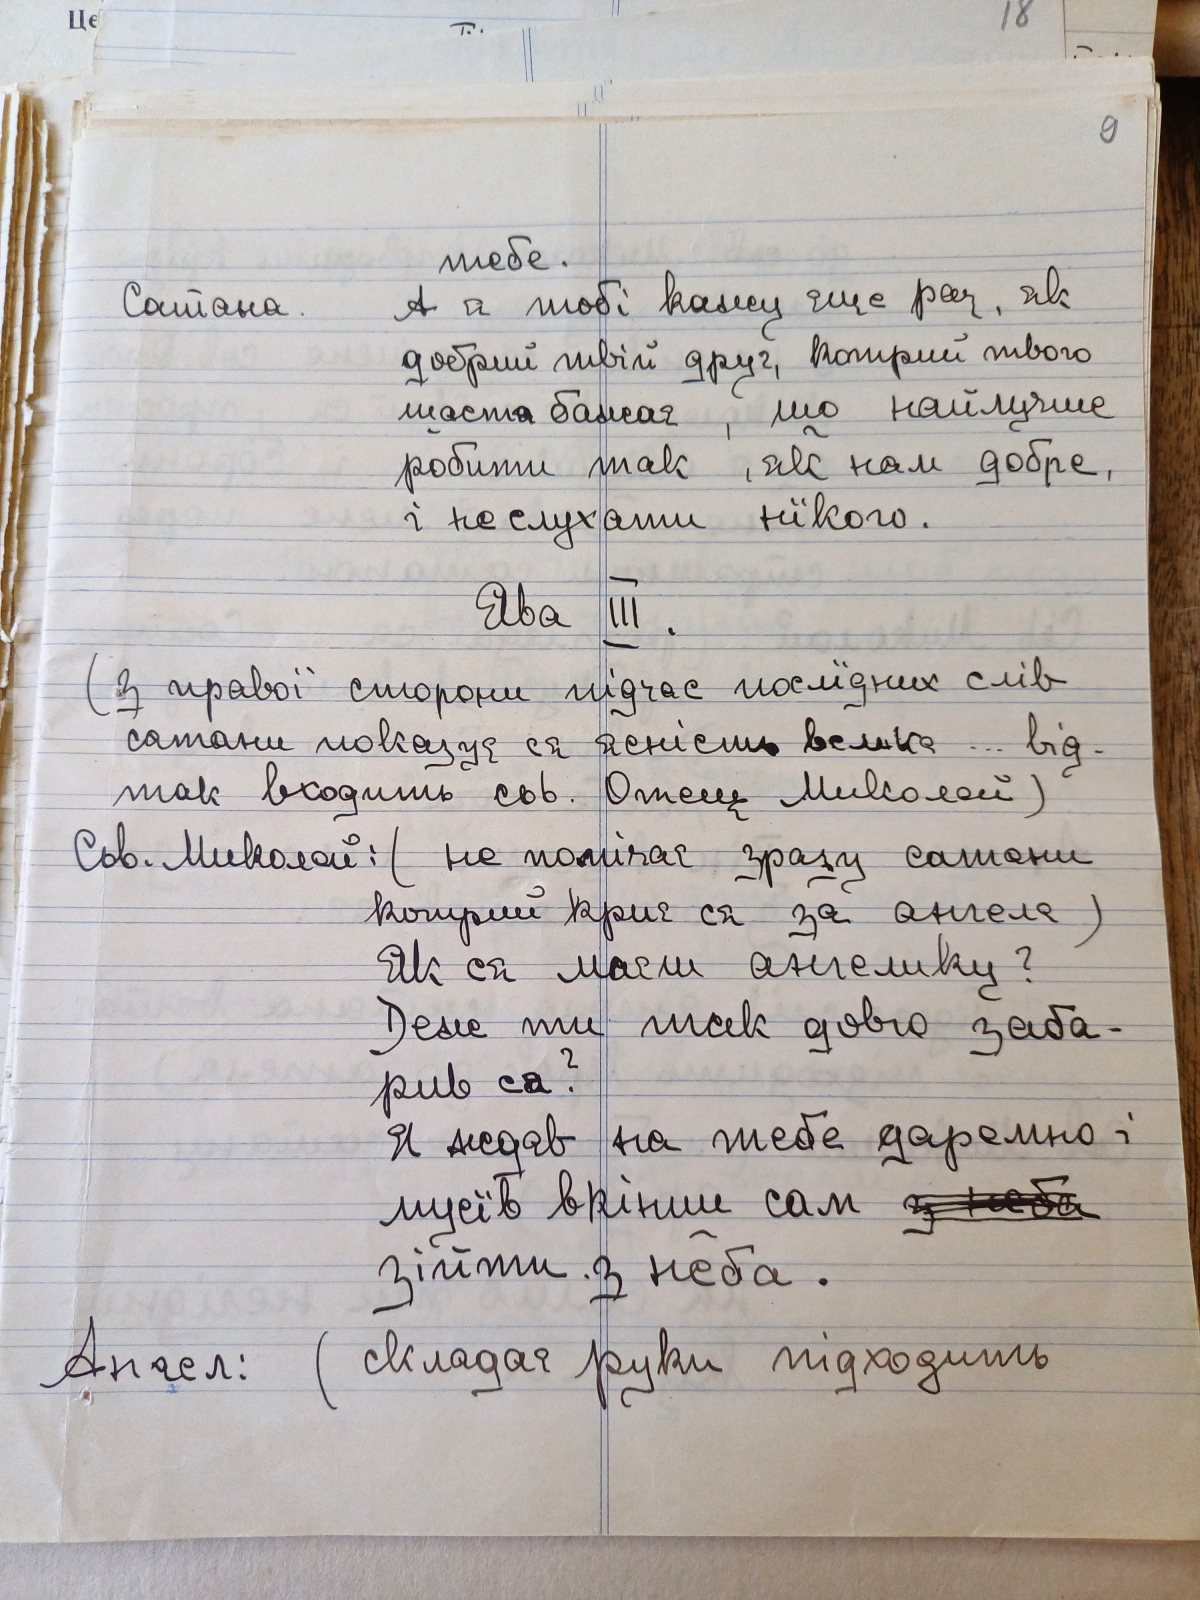 Це
18
9
тебе.
Сатана. А я тобі кажу еще раз, як
добрий твій друг, котрий твого
щастя бажає, що найлучше
робити так, як нам добре,
і не слухати нїкого.
Ява III.
(З правої сторони підчас послїдних слів
сатани показує ся ясність велика ... від-
так входить св. Отець Миколай)
Св. Миколай: ( не помічає зразу сатани
котрий криє ся за ангела)
Як ся маєш ангелику?
Деж ти так довго заба-
рив ся?
Я ждав на тебе даремно і
мусїв врінши сам з неба
зійти з неба.
Ангел: ( складає руки підходить